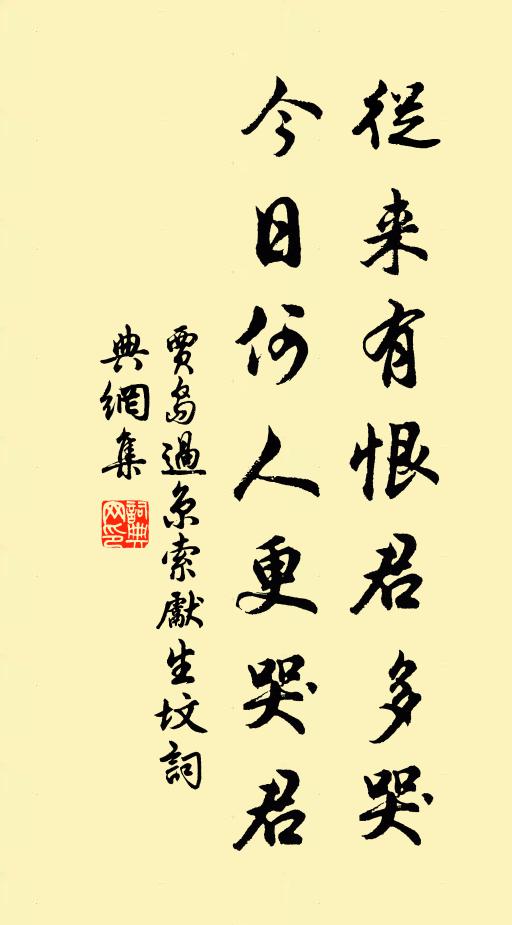 從来有恨君多哭
今日何人更哭君
賈島過京索獻生坟詞
典網集
詞典
网印